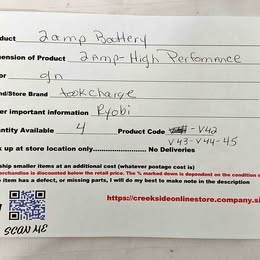 oduct 2amp Battery
mension of Product 2Amp-High Performance
or gn
nd/Store Brand tookcharge
er important information Ryobi
antity Available 4 Product Code -V42
V43-V44-45
k up at store location only No Deliveries
ship smaller items at an additional cost (whatever postage cost is)
erchandise is discounted below the retail price. The % marked down is dependent on the condition o
e item has a defect, or missing parts, I will do my best to make note in the description
https://creeksideonlinestore.company.si
SCAN ME